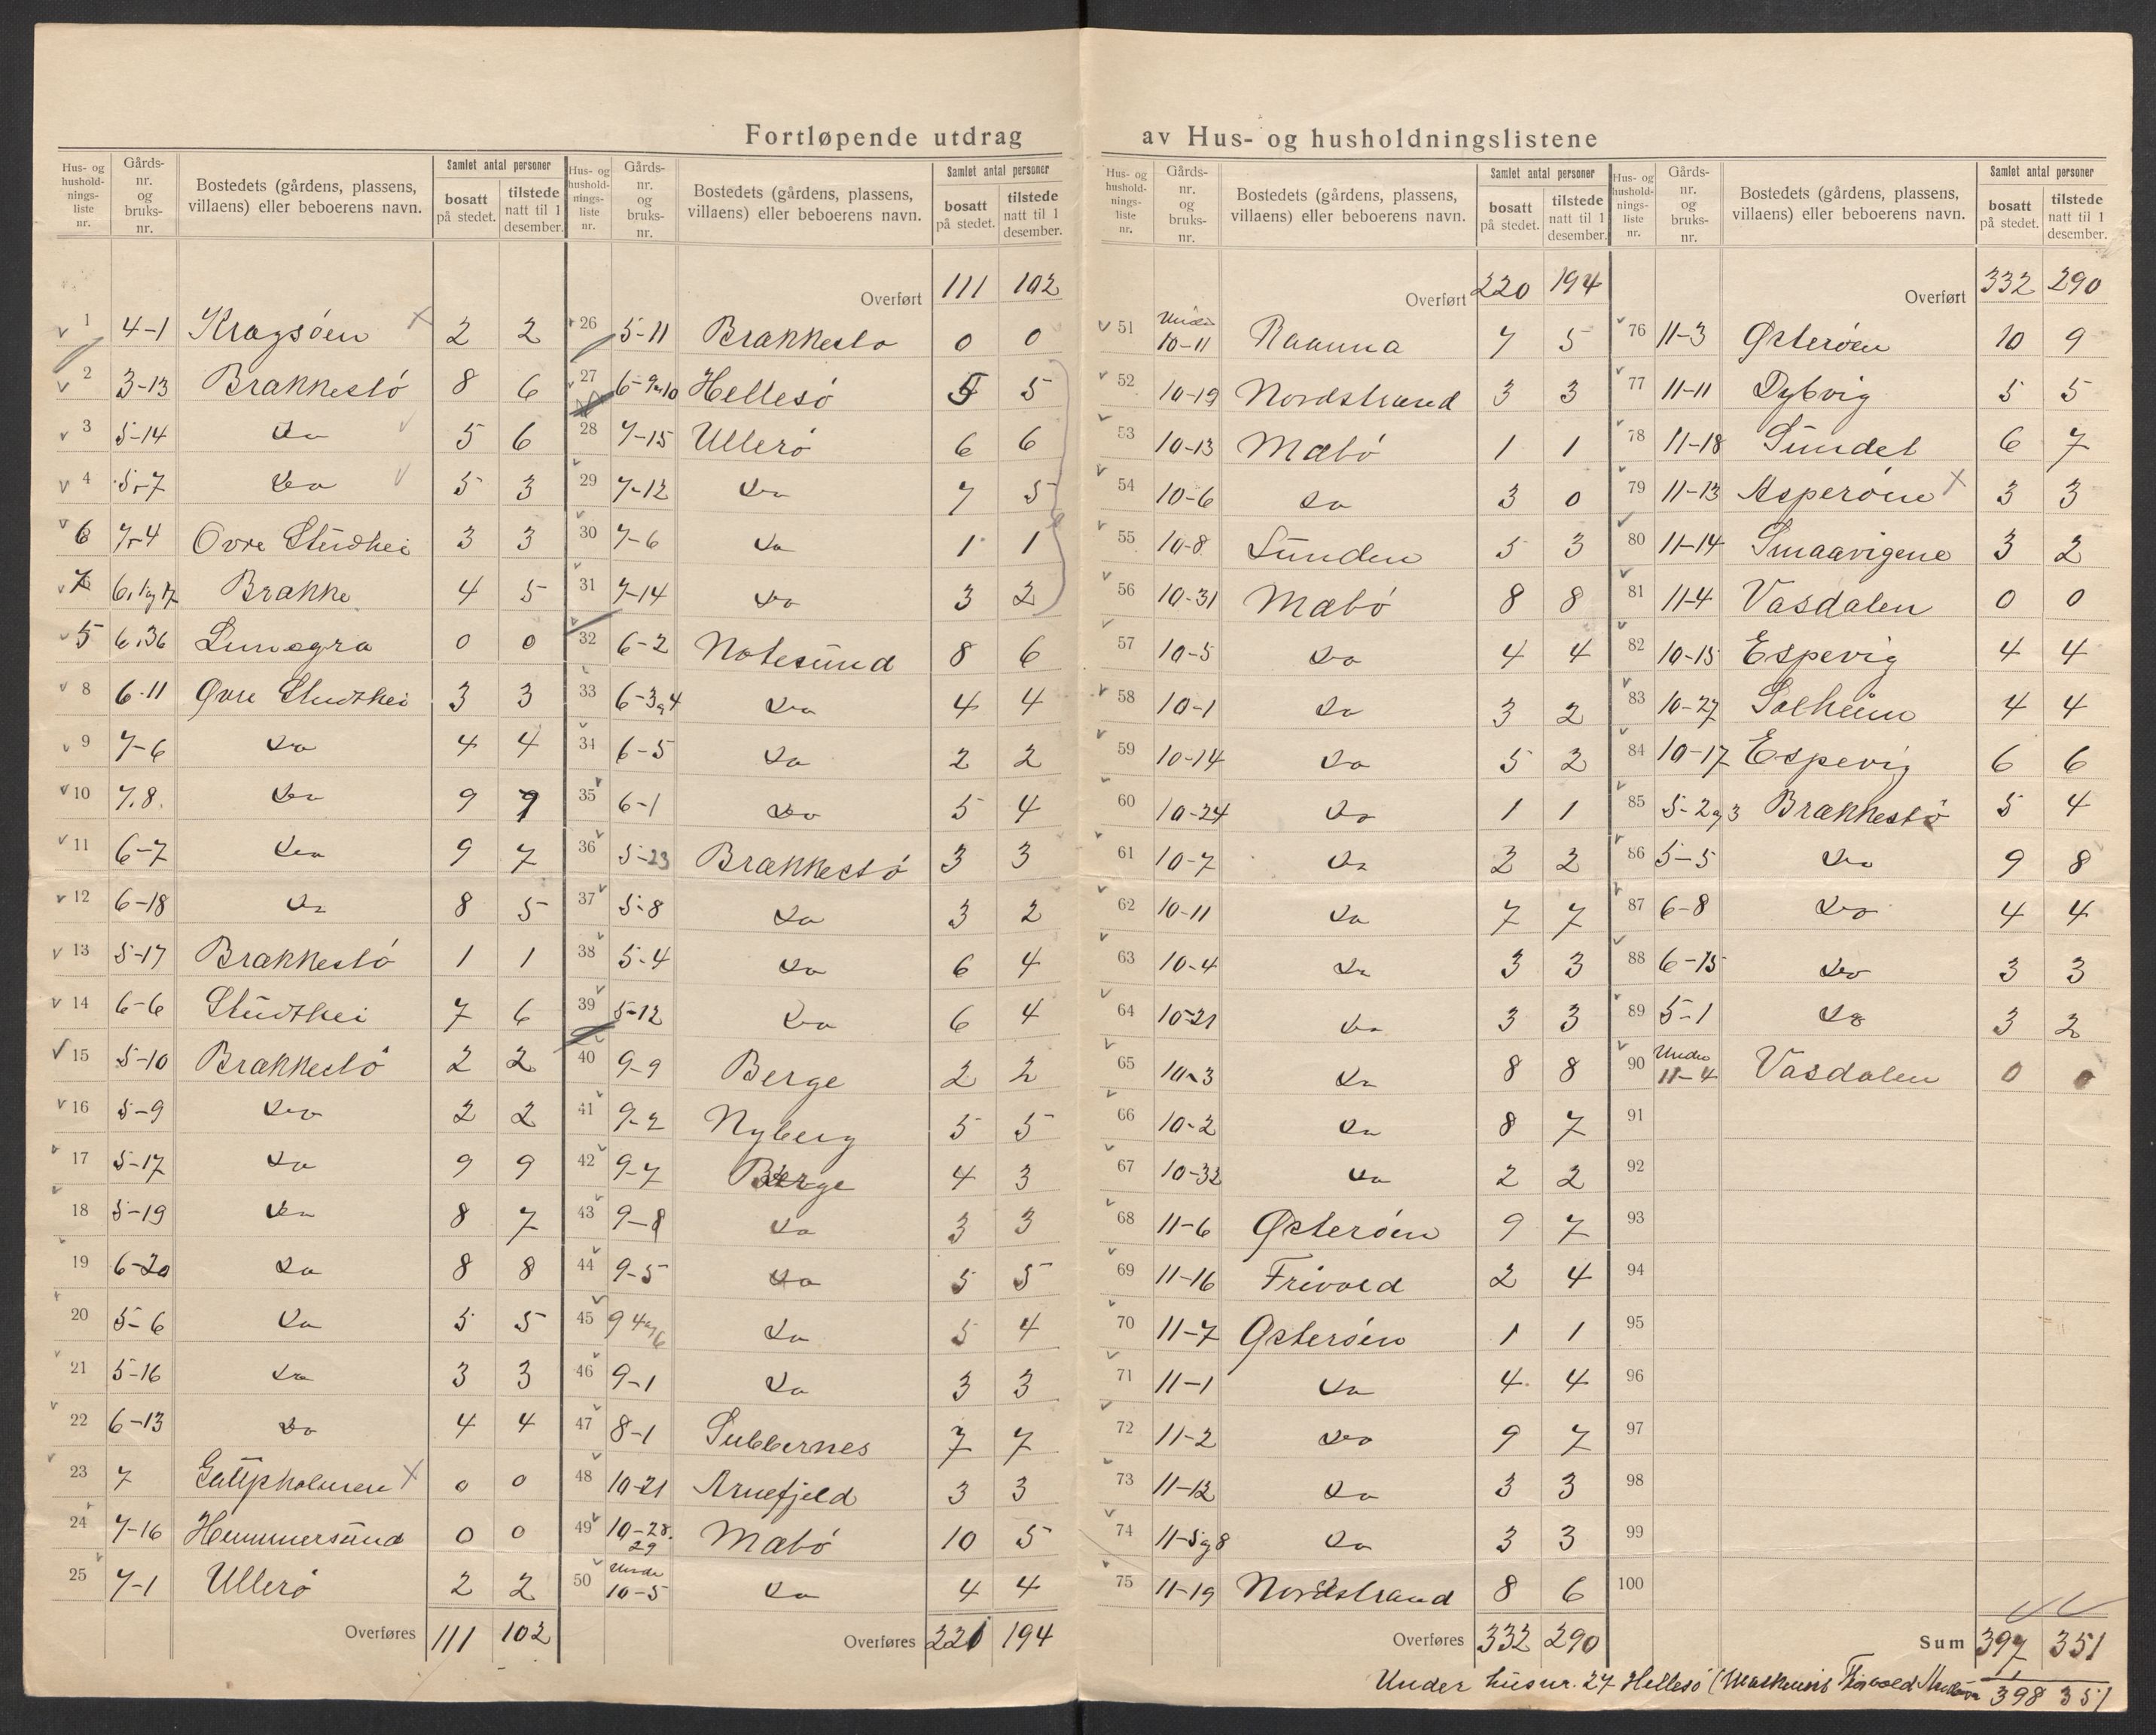 Fortløpende utdrag av Hus- og husholdningslistene
Hus- og husholdnings-liste nr. | Gårds-nr. og bruks-nr. | Bostedets (gårdens, plassens, villaens) eller beboerens navn. | Samlet antal personer bosatt på stedet. | tilstede natt til 1 desember.
1 4-1 Kragsöen 2 2
2 3-13 Brækkestö 8 6
3 5-14 Do 5 6
4 5-7 Do 5 3
6 7-4 Ovre Studhei 3 3
7 6, 1 og 17 Brække 4 5
5 6,36 0 0
8 6-11 Øvre Studthei 3 3
9 7-6 Do 4 4
10 7.8. Do 9 9
11 6-7 Do 9 7
12 6-18 Do 8 5
13 5-17 Brækkestö 1 1
14 6-6 Studthei 7 6
15 5-10 Brækkestö 2 2
16 5-9 Do 2 2
17 5-17 Do 9 9
18 5-19 Do 8 7
19 6-20 Do 8 8
20 5-6 Do 5 5
21 5-16 Do 3 3
22 6-13 Do 4 4
23 7 0 0
24 7-16 Hummersund 0 0
25 7-1 Ullerö 2 2
Overføres 111 102
Hus- og husholdnings-liste nr. | Gårds-nr. og bruks-nr. | Bostedets (gårdens, plassens, villaens) eller beboerens navn. | Samlet antal personer bosatt på stedet. | tilstede natt til 1 desember.
Overført 111 102
26 5-11 Brækkestø 0 0
27 6-9 og 10 Hellesö 5 5
28 7-15 Ullerö 6 6
29 7-12 Do 7 5
30 7-6 Do 1 1
31 7-14 Do 3 2
32 6-2 Notesund 8 6
33 6-3 og 4 Do 4 4
34 6-5 Do 2 2
35 6-1 Do 5 4
36 5-23 Brækkestö 3 3
37 5-8 Do 3 2
38 5-4 Do 6 4
39 5-12 Do 6 4
40 9-9 Berge 2 2
41 9-2 Nyberg 5 5
42 9-7 Berge 4 3
43 9-8 Do 3 3
44 9-5 Do 5 5
45 9 4 og 6 Do 5 4
46 9-1 Do 3 3
47 8-1 Subbernes 7 7
48 10-21 Arnefjeld 3 3
49 10-28. 29 Mæbö 10 5
50 Under 10-5 Do 4 4
Overføres 221 194
Hus- og husholdnings-liste nr. | Gårds-nr. og bruks-nr. | Bostedets (gårdens, plassens, villaens) eller beboerens navn. | Samlet antal personer bosatt på stedet. | tilstede natt til 1 desember.
Overført 220 194
51 Under 10-11 Raanna 7 5
52 10-19 Nordstrand 3 3
53 10-13 Mæbö 1 1
54 10-6 Do 3 0
55 10-8 Sunden 5 3
56 10-31 Mæbö 8 8
57 10-5 Do 4 4
58 10-1 Do 3 2
59 10-14 Do 5 2
60 10-24 Do 1 1
61 10-7 Do 2 2
62 10-11 Do 7 7
63 10-4 Do 3 3
64 10-21 Do 3 3
65 10-3 Do 8 8
66 10-2 Do 8 7
67 10-32 Do 2 2
68 11-6 Østeröen 9 7
69 11-16 Frivold 2 4
70 11-7 Østeröen 1 1
71 11-1 Do 4 4
72 11-2 Do 9 7
73 11-12 Do 3 3
74 11-5 og 8 Do 3 3
75 11-19 Nordstrand 8 6
Overføres 332 290
Hus- og husholdnings-liste nr. | Gårds-nr. og bruks-nr. | Bostedets (gårdens, plassens, villaens) eller beboerens navn. | Samlet antal personer bosatt på stedet. | tilstede natt til 1 desember.
Overført 332 290
76 11-3 Østeröen 10 9
77 11-11 Dybvig 5 5
78 11-18 Sundet 6 7
79 11-13 Asperöen 3 3
80 11-14 Smaavigene 3 2
81 11-4 Vasdalen 0 0
82 10-15 Espevig 4 4
83 10-27 Solheim 4 4
84 10-17 Espevig 6 6
85 5-2 og 3 Brækkestö 5 4
86 5-5 Do 9 8
87 6-8 Do 4 4
88 6-15 Do 3 3
89 5-1 Do 3 2
90 Under 11-4 Vasdalen 0 0
91
92
93
94
95
96
97
98
99
100
Sum 397 351
Under husnr. 27 Hellesö 398 351